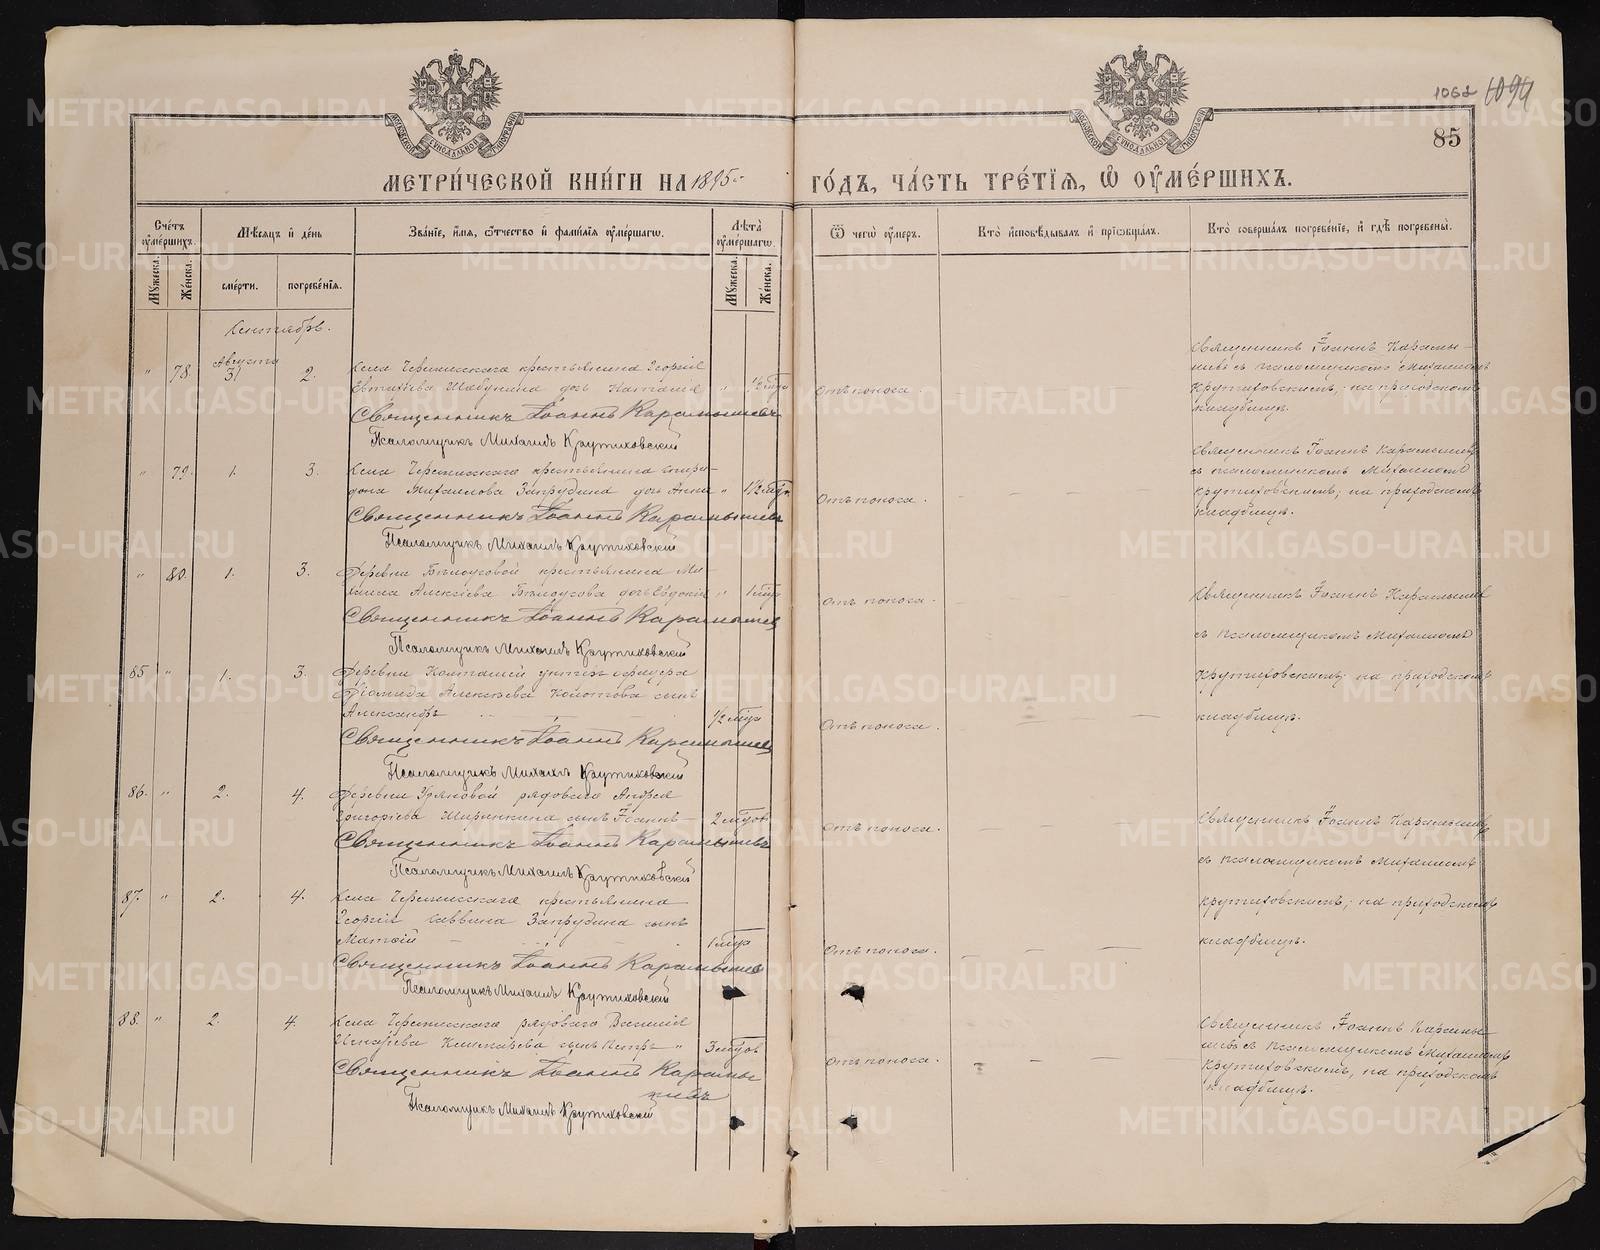 1062 1094
85
МЕТРИ́ЧЕСКОЙ КНИ́ГИ НА 1895
ГО́ДЪ, ЧА́СТЬ ТРЕ́ТІЯ, Ѿ ОУМЕ́РШИХЪ.
Сче́тъ оумершихъ.
Мѣсяцъ и день
Званіе, имя, отчество и фамилія оумершагѡ.
Лѣта оумершагѡ.
Ѿ чегѡ оумеръ.
Кто исповѣдывалъ и пріобщалъ.
Кто совершалъ погребеніе, и гдѣ погребены.
Мужеска.
Женска.
смерти.
погребенія.
Мужеска.
Женска.
Сентябрь.
" 78. Августа 31 2.
Села Черемисскаго крестьянина Георгія
Евтихіева Шабунина дочь Наталія " 1/2 года
Отъ поноса
Священникъ Іоаннъ Карамы-
шевъ съ псаломщикомъ Михаиломъ
Крутиховскимъ; на приходскомъ
кладбищѣ.
Священникъ Іоаннъ Карамышевъ
Псаломщикъ Михаилъ Крутиховскій
" 79. 1. 3.
Села Черемисскаго крестьянина Спири-
дона Михаилова Запрудина дочь Анна " 1 1/2 года
Отъ поноса.
Священникъ Іоаннъ Карамышевъ
съ псаломщикомъ Михаиломъ
Крутиховскимъ; на приходскомъ
кладбищѣ.
Священникъ Іоаннъ Карамышевъ
Псаломщикъ Михаилъ Крутиховскій
" 80. 1. 3.
Деревни Бѣлоусовой крестьянина Ми-
хаила Алексіева Бѣлоусова дочь Евдокія " 1 года
Отъ поноса.
Священникъ Іоаннъ Карамышевъ
Псаломщикъ Михаилъ Крутиховскій
85 " 1. 3.
Деревни Колташей унтеръ офицера
Діомида Алексѣева Колотова сынъ
Александръ 1/2 года
Отъ поноса.
Священникъ Іоаннъ Карамышевъ
съ псаломщикомъ Михаиломъ
Крутиховскимъ; на приходскомъ
кладбищѣ.
Священникъ Іоаннъ Карамышевъ
Псаломщикъ Михаилъ Крутиховскій
86. " 2. 4.
Деревни рядоваго Андрея
Григоріева Ширинкина сынъ Іоаннъ 2 годовъ
Отъ поноса.
Священникъ Іоаннъ Карамышевъ
Псаломщикъ Михаилъ Крутиховскій
87. " 2. 4.
Села Черемисскаго крестьянина
Георгія Саввина Запрудина сынъ
Матѳій 1 года
Отъ поноса.
Священникъ Іоаннъ Карамышевъ
съ псаломщикомъ Михаиломъ
Крутиховскимъ; на приходскомъ
кладбищѣ.
Священникъ Іоаннъ Карамышевъ
Псаломщикъ Михаилъ Крутиховскій
88. " 2. 4.
Села Черемисскаго рядоваго Василія
сынъ Петръ " 3 годовъ
Отъ поноса.
Священникъ Іоаннъ Карамы-
шевъ съ псаломщикомъ Михаиломъ
Крутиховскимъ, на приходскомъ
кладбищѣ.
Священникъ Іоаннъ Карамы
шевъ
Псаломщикъ Михаилъ Крутиховскій
METRIKI.GASO-URAL.RU